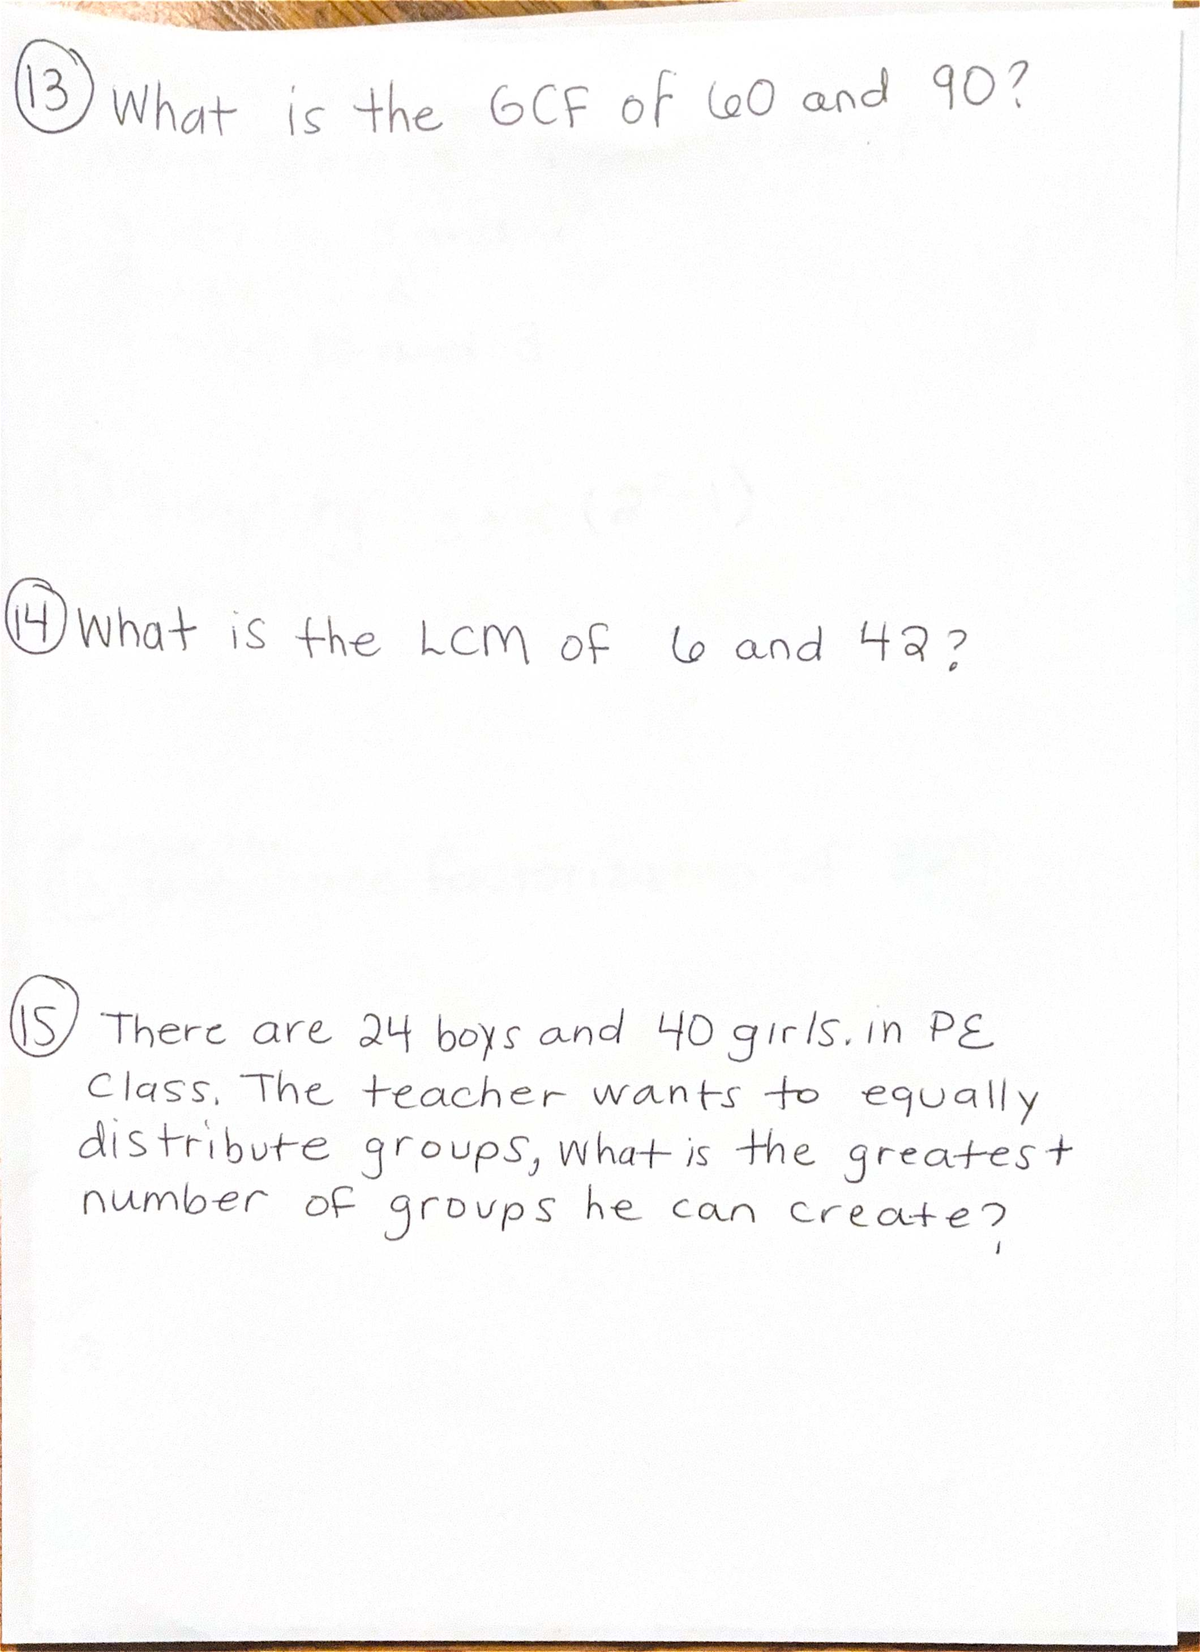 13 What is the GCF of 60 and 90?
14 What is the LCM of 6 and 42?
15 There are 24 boys and 40 girls. in PE
Class. The teacher wants to equally
distribute groups, What is the greatest
number of groups he can create?